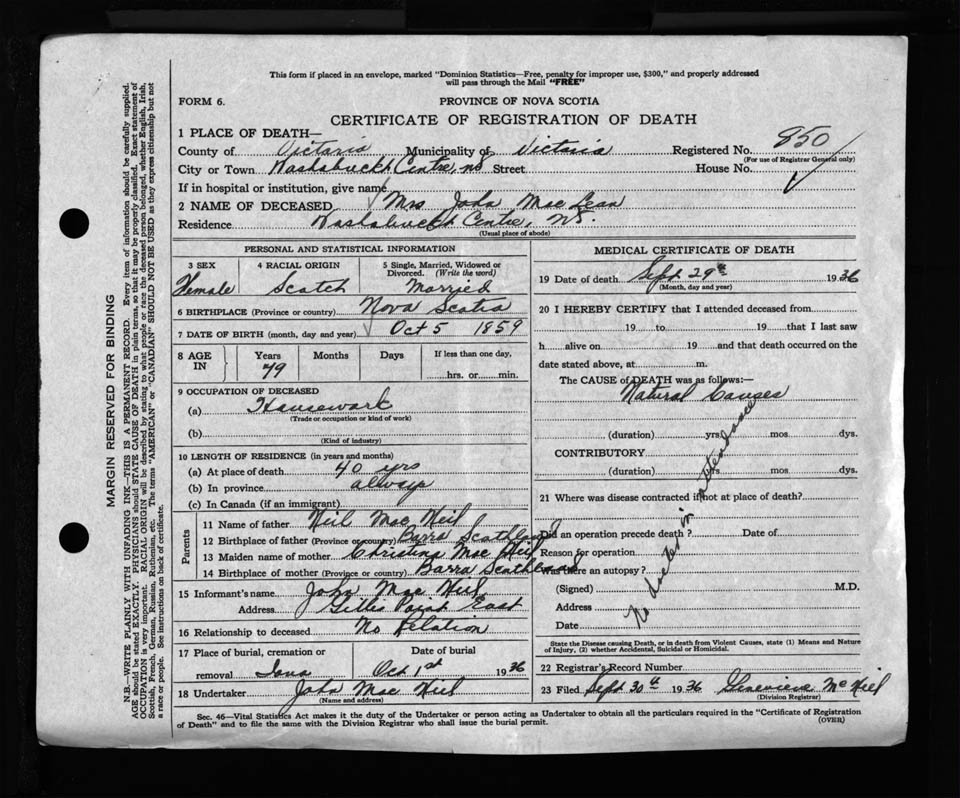 This form if placed in an envelope, marked "Dominion Statistics—Free, penalty for improper use, $300," and properly addressed
will pass through the Mail "FREE"
FORM 6.
PROVINCE OF NOVA SCOTIA
CERTIFICATE OF REGISTRATION OF DEATH
1 PLACE OF DEATH—
County of Victoria Municipality of Victoria Registered No. 850
(For use of Registrar General only)
City or Town Centre, ns Street House No.
If in hospital or institution, give name
2 NAME OF DECEASED Mrs John Mac Lean
Residence Centre, NS.
(Usual place of abode)
PERSONAL AND STATISTICAL INFORMATION
3 SEX 4 RACIAL ORIGIN 5 Single, Married, Widowed or
Divorced. (Write the word)
Female Scotch Married
6 BIRTHPLACE (Province or country) Nova Scotia
7 DATE OF BIRTH (month, day and year) Oct 5 1859
8 AGE IN Years Months Days If less than one day,
79 hrs. or min.
9 OCCUPATION OF DECEASED
(a) Housework
(Trade or occupation or kind of work)
(b)
(Kind of industry)
10 LENGTH OF RESIDENCE (in years and months)
(a) At place of death 40 yrs
(b) In province always
(c) In Canada (if an immigrant)
Parents
11 Name of father Neil Mac Neil
12 Birthplace of father (Province or country) Barra Scothland
13 Maiden name of mother Christina Mac Neil
14 Birthplace of mother (Province or country) Barra Scothland
15 Informant's name John Mac Neil
Address Gillis Point East
16 Relationship to deceased No Relation
17 Place of burial, cremation or Date of burial
removal Iona Oct 1st 1936
18 Undertaker John Mac Neil
(Name and address)
MEDICAL CERTIFICATE OF DEATH
19 Date of death Sept 29th 1936
(Month, day and year)
20 I HEREBY CERTIFY that I attended deceased from
19 to 19 that I last saw
h alive on 19 and that death occurred on the
date stated above, at m.
The CAUSE of DEATH was as follows:—
Natural Causes
(duration) yrs mos dys.
CONTRIBUTORY
(duration) yrs mos dys.
No doctor in attendance
21 Where was disease contracted if not at place of death?
Did an operation precede death? Date of
Reason for operation
Was there an autopsy?
(Signed) M.D.
Address
Date
State the Disease causing Death, or in death from Violent Causes, state (1) Means and Nature
of Injury, (2) whether Accidental, Suicidal or Homicidal.
22 Registrar's Record Number
23 Filed Sept 30th 1936 Genevieve McNeil
(Division Registrar)
Sec. 46—Vital Statistics Act makes it the duty of the Undertaker or person acting as Undertaker to obtain all the particulars required in the "Certificate of Registration
of Death" and to file the same with the Division Registrar who shall issue the burial permit.
(OVER)
MARGIN RESERVED FOR BINDING
N.B.—WRITE PLAINLY WITH UNFADING INK—THIS IS A PERMANENT RECORD. Every item of information should be carefully supplied.
AGE should be stated EXACTLY. PHYSICIANS should STATE CAUSE OF DEATH in plain terms, so that it may be properly classified. Exact statement of
OCCUPATION is very important. RACIAL ORIGIN will be described by stating to what people or race the deceased person belonged, whether English, Irish,
Scottish, French, German, Russian, Ruthenian, etc. The terms "AMERICAN" or "CANADIAN" SHOULD NOT BE USED as they express citizenship but not
a race or people. See instructions on back of certificate.